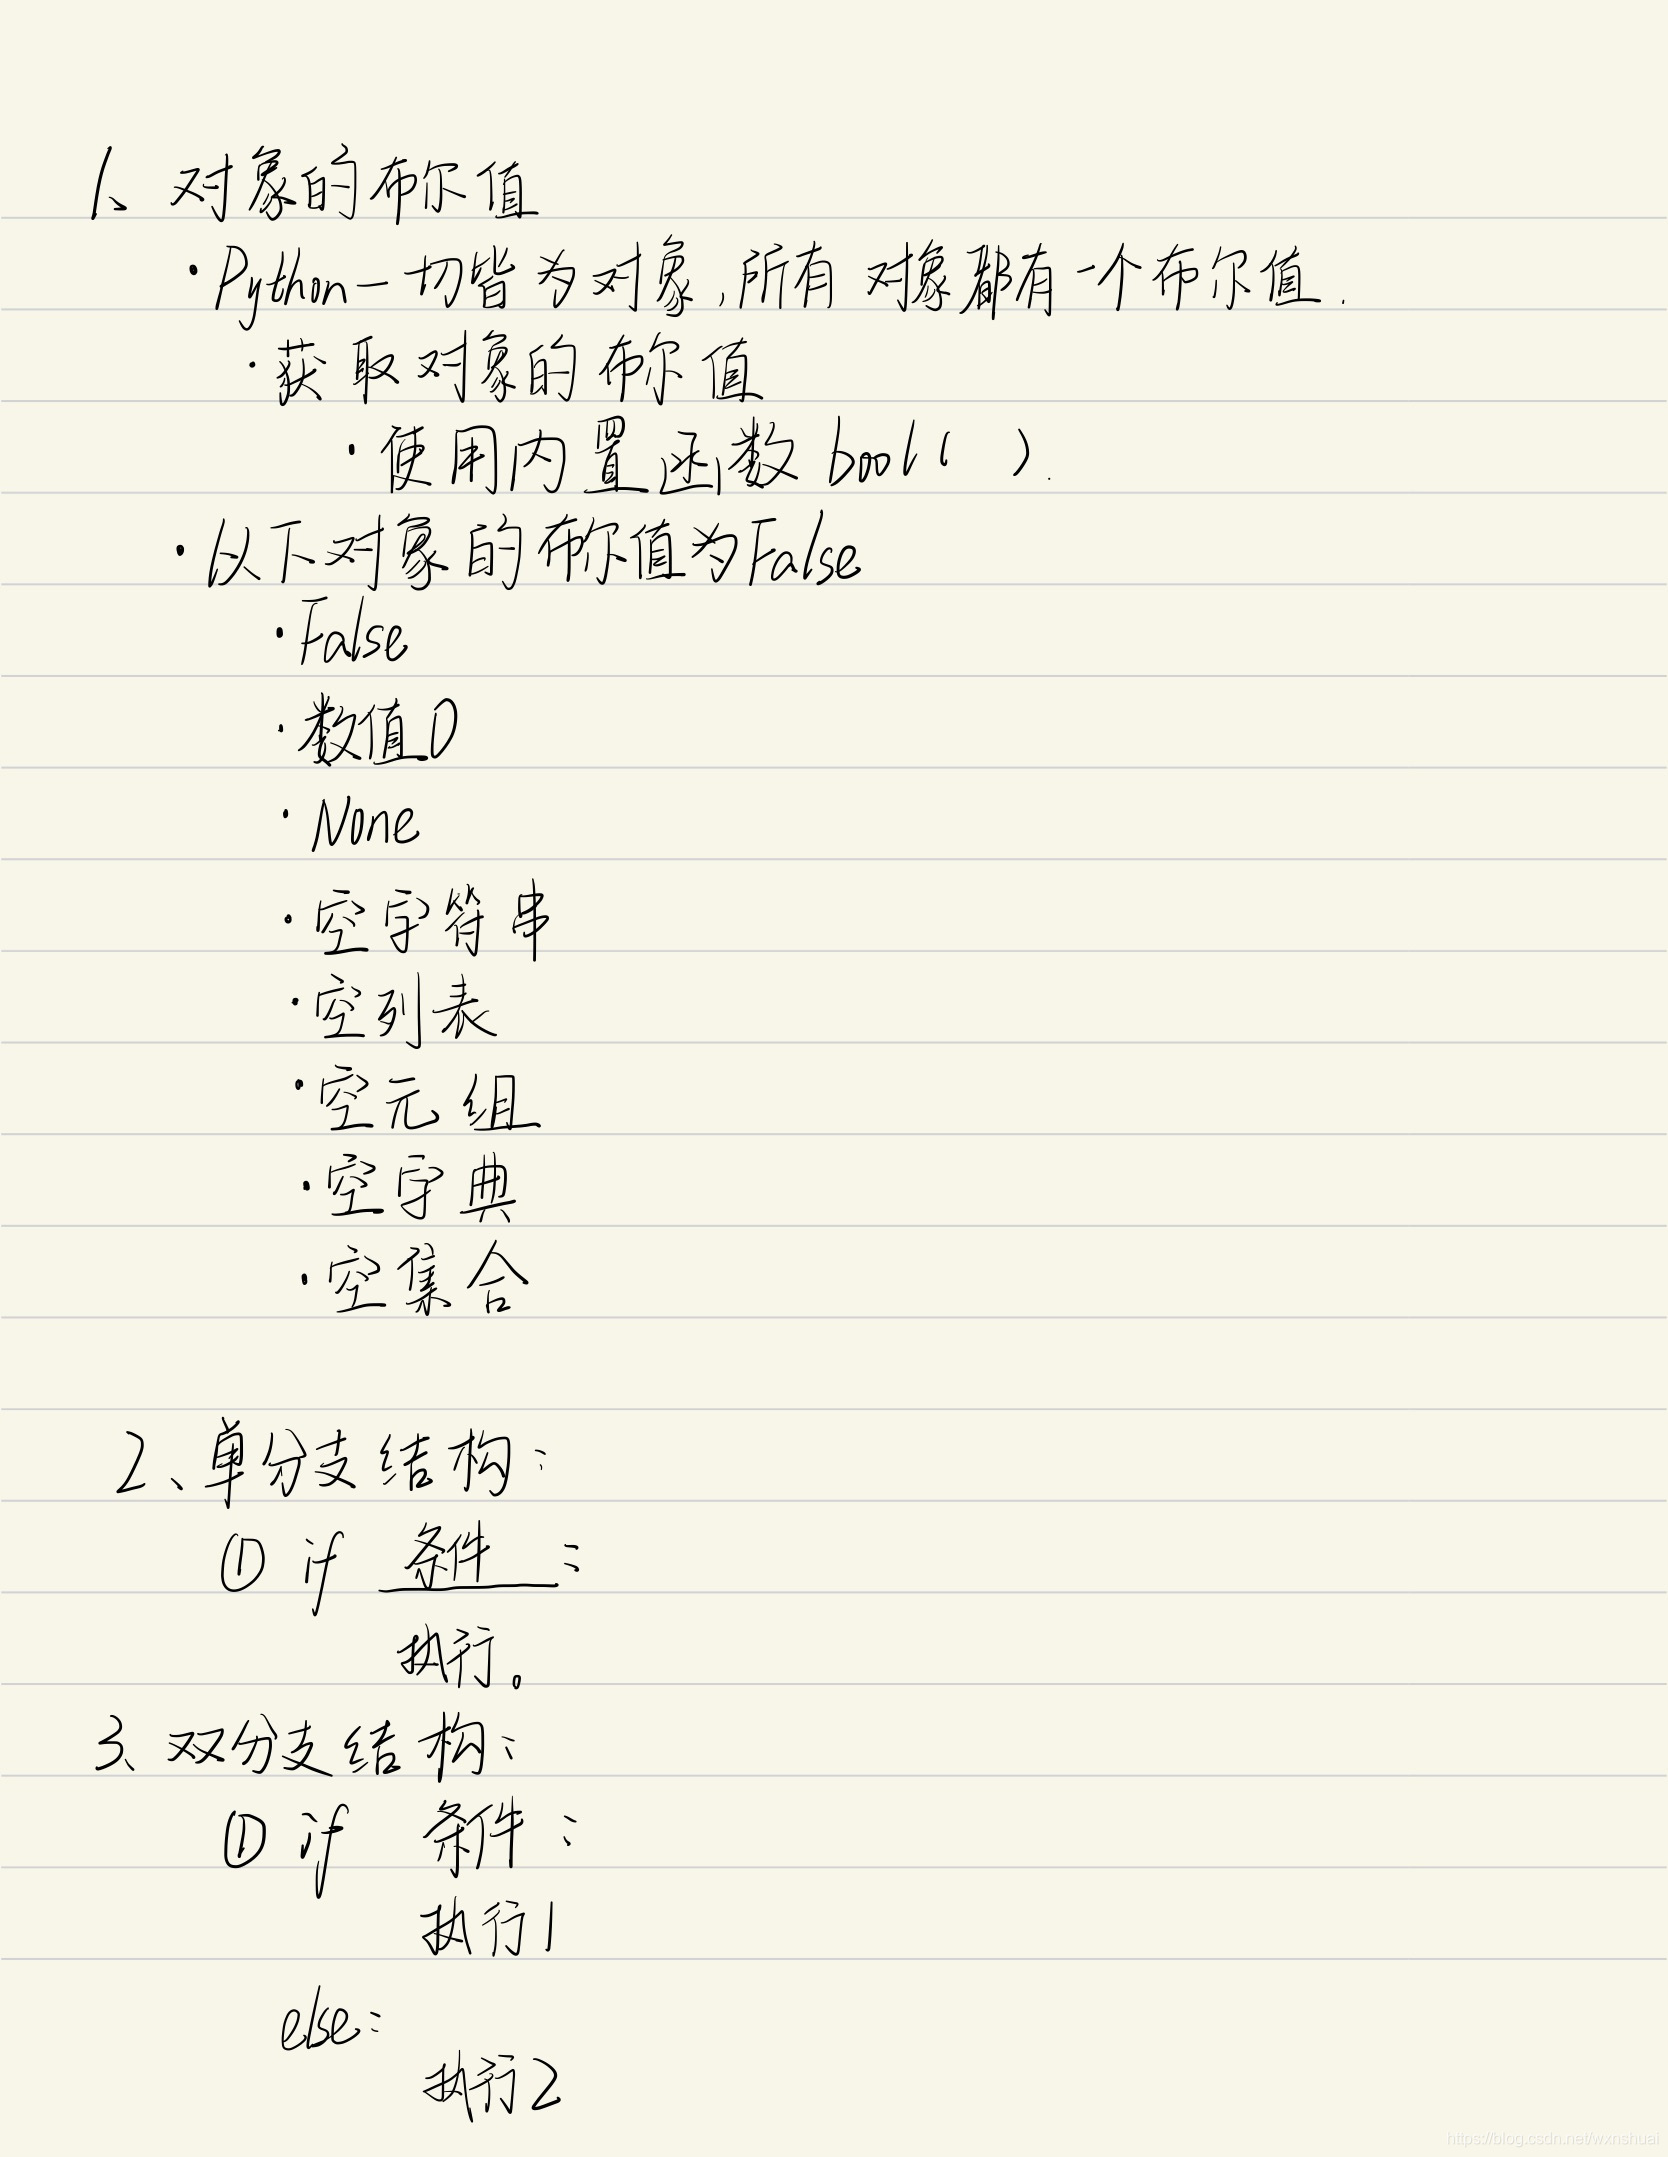 1、对象的布尔值
·Python一切皆为对象,所有对象都有一个布尔值.
·获取对象的布尔值
·使用内置函数bool( ).
·以下对象的布尔值为False
·False
·数值0
·None
·空字符串
·空列表
·空元组
·空字典
·空集合
2、单分支结构:
① if 条件 :
执行。
3、双分支结构:
① if 条件:
执行1
else:
执行2
https://blog.csdn.net/wxnshuai